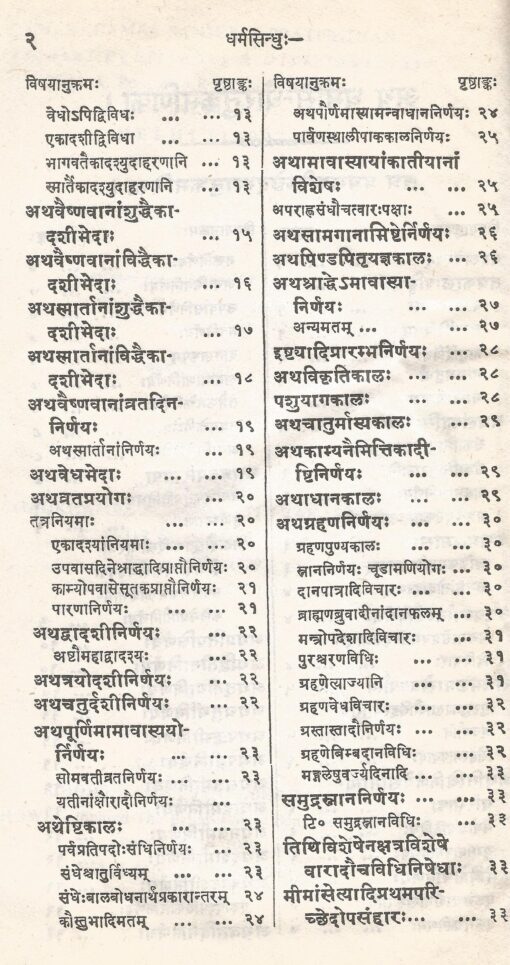 २
धर्मसिन्धुः—
विषयानुक्रमः पृष्ठाङ्कः
वेधोऽपिद्विविधः ... ... १३
एकादशीद्विविधा ... १३
भागवतैकादश्युदाहरणानि ... १३
स्मार्तैकादश्युदाहरणानि १३
अथवैष्णवानांशुद्धैका-
दशीभेदाः ... ... १५
अथवैष्णवानांविद्धैका-
दशीभेदाः ... ... १६
अथस्मार्तानांशुद्धैका-
दशीभेदाः ... ... १७
अथस्मार्तानांविद्धैका-
दशीभेदाः ... ... १८
अथवैष्णवानांव्रतदिन-
निर्णयः ... ... १९
अथस्मार्तानांनिर्णयः ... १९
अथवेधभेदाः ... ... १९
अथव्रतप्रयोगः ... ... २०
तत्रनियमाः ... ... २०
एकादश्यांनियमाः ... ... २०
उपवासदिनेश्राद्धादिप्राप्तौनिर्णयः २०
काम्योपवासेसूतकप्राप्तौनिर्णयः २१
पारणानिर्णयः ... ... २१
अथद्वादशीनिर्णयः ... २२
अष्टौमहाद्वादश्यः ... २२
अथत्रयोदशीनिर्णयः ... २२
अथचतुर्दशीनिर्णयः ... २२
अथपूर्णिमामावास्ययो-
र्निर्णयः ... ... २३
सोमवतीव्रतनिर्णयः ... ... २३
यतीनांक्षौरादौनिर्णयः
अथेष्टिकालः ... ... २३
पर्वप्रतिपदोःसंधिनिर्णयः ... २३
संधेश्चातुर्विध्यम् ... ... २३
संधेःबालबोधनार्थप्रकारान्तरम् २४
कौस्तुभादिमतम् ... ... २४
विषयानुक्रमः पृष्ठाङ्कः
अथपौर्णमास्यामन्वाधाननिर्णयः २४
पार्वणस्थालीपाककालनिर्णयः २५
अथामावास्यायांकातीयानां
विशेषः ... ... २५
अपराह्णसंधौचत्वारःपक्षाः ... २५
अथसामगानामिष्टेर्निर्णयः २६
अथपिण्डपितृयज्ञकालः ... २६
अथश्राद्धेऽमावास्या-
निर्णयः ... ... २७
अन्यमतम् ... ... २७
इष्ट्यादिप्रारम्भनिर्णयः ... २८
अथविकृतिकालः ... ... २८
पशुयागकालः ... ... २८
अथचातुर्मास्यकालः ... २९
अथकाम्यनैमित्तिकादी-
ष्टिनिर्णयः ... ... २९
अथाधानकालः ... ... २९
अथग्रहणनिर्णयः ... ... ३०
ग्रहणपुण्यकालः ... ... ३०
स्नाननिर्णयः चूडामणियोगः ... ३०
दानपात्रादिविचारः ... ... ३०
ब्राह्मणब्रुवादीनांदानफलम् ... ३०
मन्त्रोपदेशादिविचारः ... ३१
पुरश्चरणविधिः ... ... ३१
ग्रहणेत्याज्यानि ... ... ३१
ग्रहणवेधविचारः ... ... ३२
ग्रस्तास्तादौनिर्णयः ... ... ३२
ग्रहणेबिम्बदानविधिः ... ३२
मङ्गलेषुवर्ज्यदिनादि ... ... ३३
समुद्रस्नाननिर्णयः ... ... ३३
टि० समुद्रस्नानविधिः ... ३३
तिथिविशेषेनक्षत्रविशेषे
वारादौचविधिनिषेधाः ३३
मीमांसेत्यादिप्रथमपरि-
च्छेदोपसंहारः... ... ३३